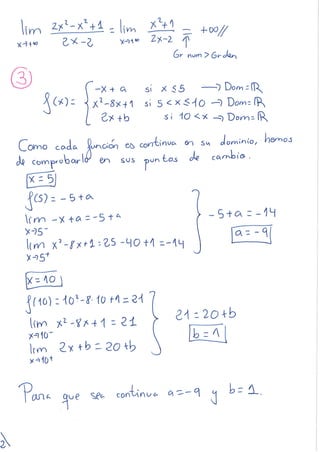 lim 2x²-x²+1 / 2x-2 = lim x²+1 / 2x-2 = +∞//
x→+∞ x→+∞ ⇑
Gr num > Gr den
③
f(x)= { -x+a si x≤5 → Dom=ℝ
x²-8x+1 si 5<x≤10 → Dom=ℝ
2x+b si 10<x → Dom=ℝ
Como cada función es continua en su dominio, hemos
de comprobarlo en sus puntos de cambio.
x=5
f(5)=-5+a
lim -x+a=-5+a
x→5⁻
-5+a=-14
a=-9
lim x²-8x+1=25-40+1=-14
x→5⁺
x=10
f(10)=10²-8·10+1=21
lim x²-8x+1=21
x→10⁻
21=20+b
b=1
lim 2x+b=20+b
x→10⁺
Para que sea continua a=-9 y b=1.